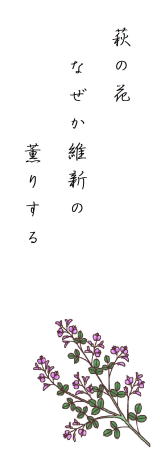 萩の花
なぜか維新の
薫りする